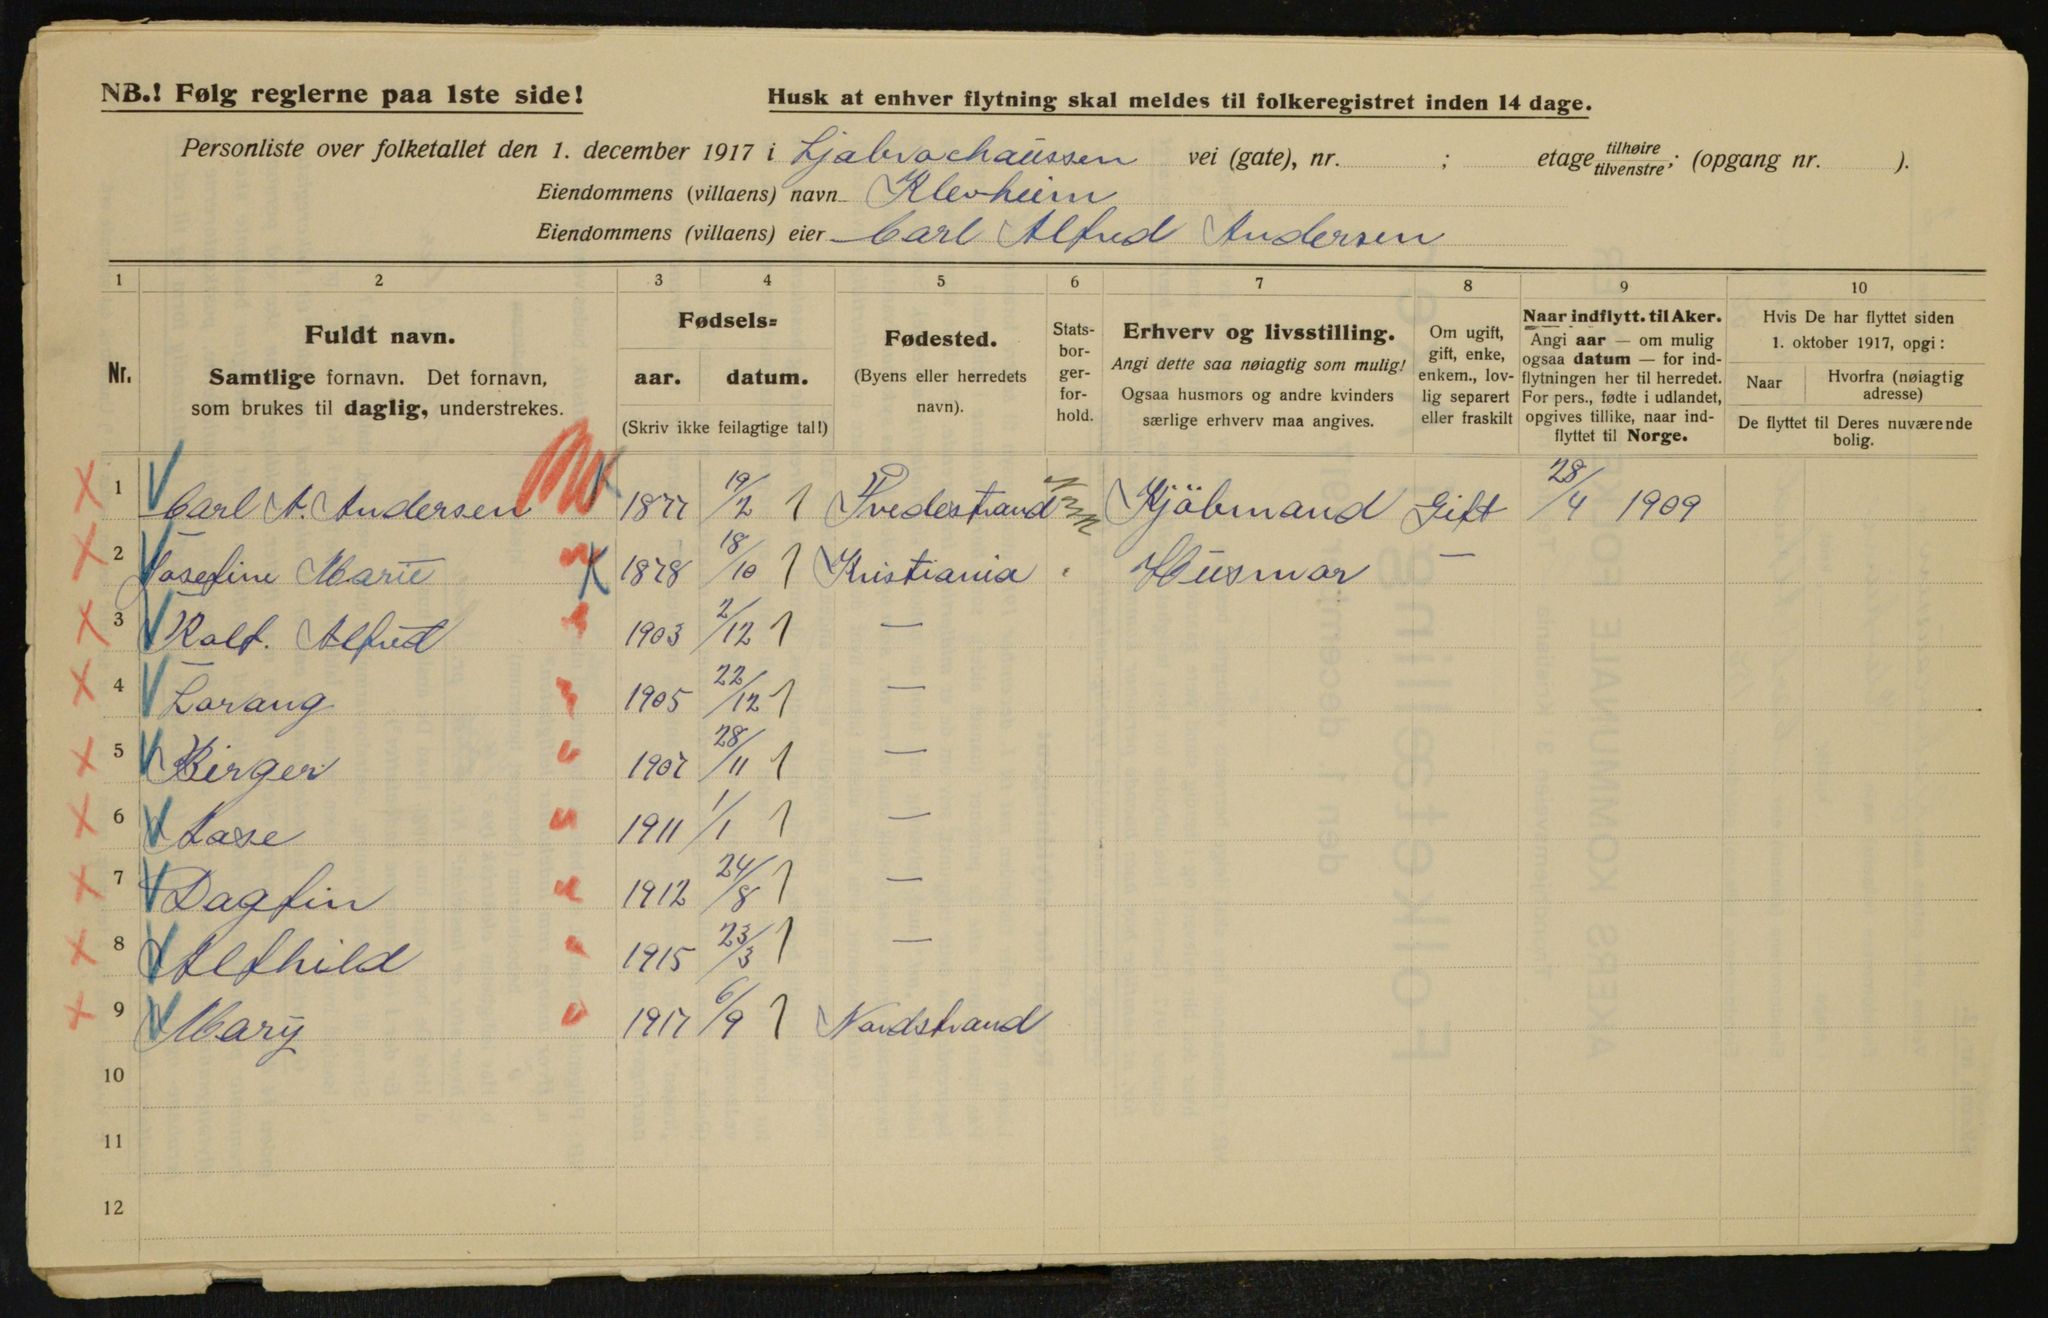 NB.! Følg reglerne paa 1ste side!
Husk at enhver flytning skal meldes til folkeregistret inden 14 dage.
Personliste over folketallet den 1. december 1917 i Ljabrochaussen vei (gate), nr. ; etage tilhøire tilvenstre; (opgang nr. ).
Eiendommens (villaens) navn Klevheim
Eiendommens (villaens) eier Carl Alfred Andersen
1 2 3 4 5 6 7 8 9 10
Nr.
Fuldt navn.
Samtlige fornavn. Det fornavn,
som brukes til daglig, understrekes.
Fødsels=
aar. datum.
(Skriv ikke feilagtige tal!)
Fødested.
(Byens eller herredets
navn).
Stats-
bor-
ger-
for-
hold.
Erhverv og livsstilling.
Angi dette saa nøiagtig som mulig!
Ogsaa husmors og andre kvinders
særlige erhverv maa angives.
Om ugift,
gift, enke,
enkem., lov-
lig separert
eller fraskilt
Naar indflytt. til Aker.
Angi aar — om mulig
ogsaa datum — for ind-
flytningen her til herredet.
For pers., fødte i udlandet,
opgives tillike, naar ind-
flyttet til Norge.
Hvis De har flyttet siden
1. oktober 1917, opgi:
Naar Hvorfra (nøiagtig
adresse)
De flyttet til Deres nuværende
bolig.
1 Carl A. Andersen 1877 19/2 Tvedestrand Kjöbmand Gift 28/4 1909
2 Josefine Marie 1878 18/10 Kristiania Husmor —
3 Rolf. Alfred 1903 2/12 —
4 Lorang 1905 22/12 —
5 Birger 1907 28/11 —
6 Aase 1911 1/1 —
7 Dagfin 1912 24/8 —
8 Alfhild 1915 23/3 —
9 Mary 1917 6/9 Nordstrand
10
11
12